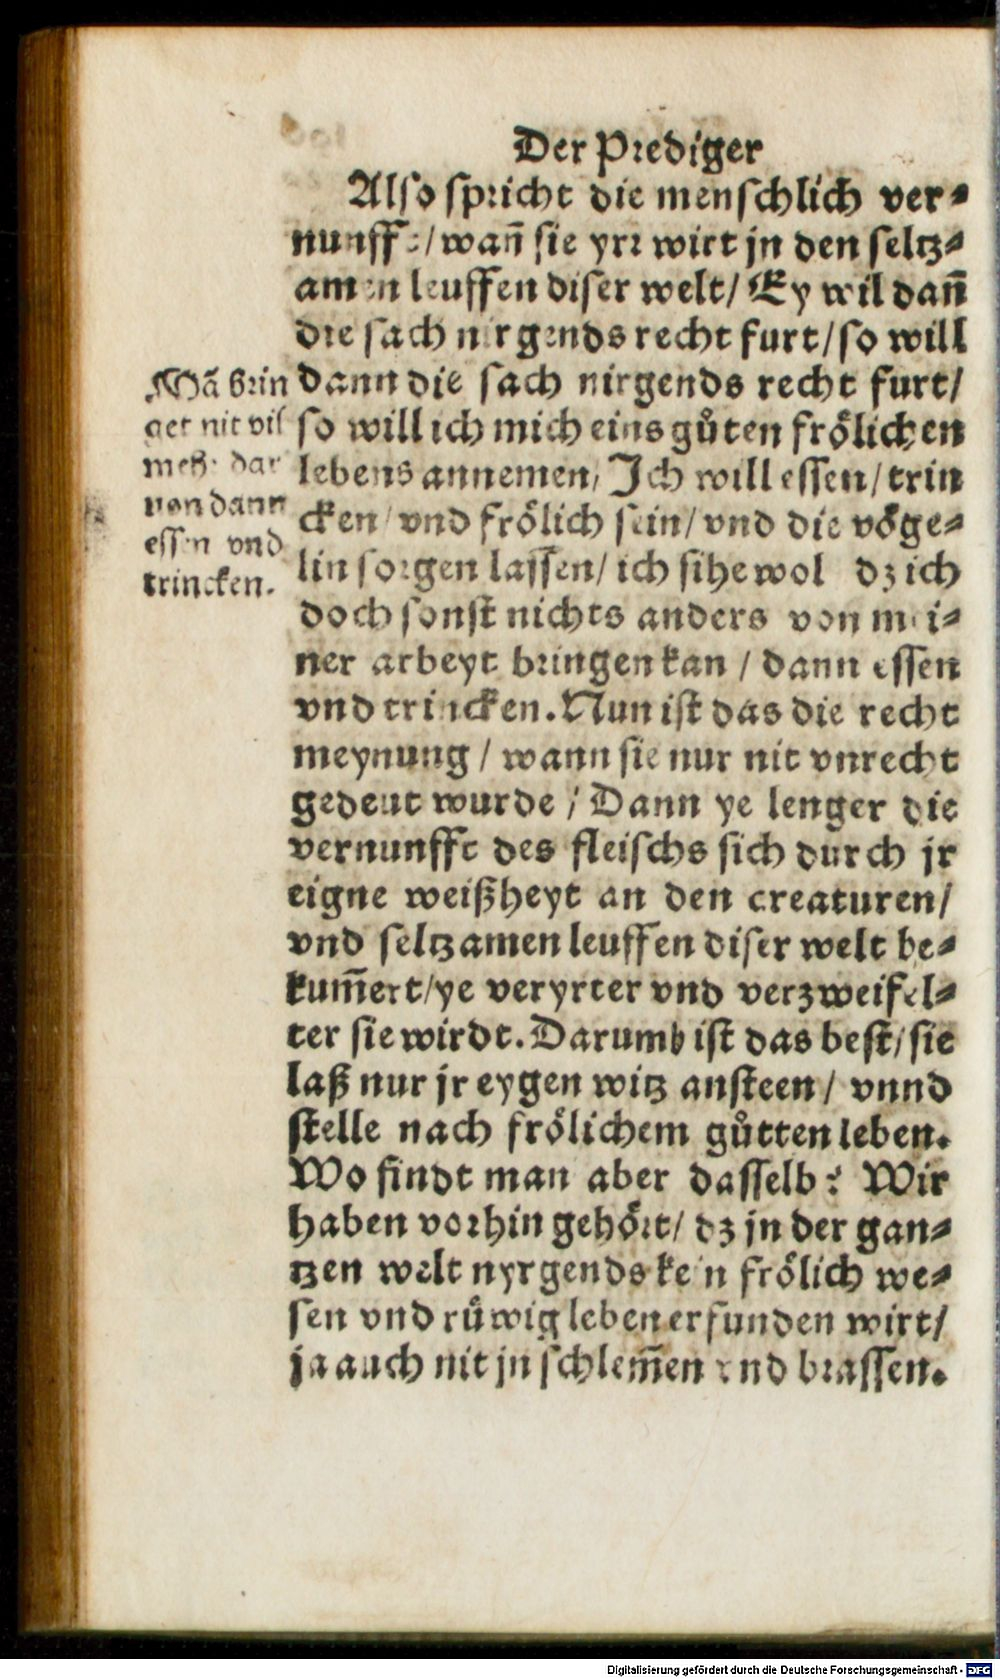 Der Prediger
Also spricht die menschlich ver⸗
nunfft/wañ sie yrr wirt jn den seltz⸗
amen leuffen diser welt/ Ey wil dañ
die sach nirgends recht furt/so will
dann die sach nirgends recht furt/
so will ich mich eins gůten frölichen
lebens annemen/ Ich will essen/trin
cken/vnd frölich sein/vnd die vöge⸗
lin sorgen lassen/ich sihe wol dz ich
doch sonst nichts anders von mei⸗
ner arbeyt bringen kan / dann essen
vnd trincken. Nun ist das die recht
meynung / wann sie nur nit vnrecht
gedeut wurde / Dann ye lenger die
vernunfft des fleischs sich durch jr
eigne weißheyt an den creaturen/
vnd seltzamen leuffen diser welt be⸗
kum̃ert/ye veryrter vnd verzweifel⸗
ter sie wirdt. Darumb ist das best/sie
laß nur jr eygen witz ansteen/ vnnd
stelle nach frölichem gůtten leben.
Wo findt man aber dasselb? Wir
haben vorhin gehört/ dz jn der gan⸗
tzen welt nyrgends kein frölich we⸗
sen vnd rüwig leben erfunden wirt/
ja auch nit jn schlem̃en vnd brassen.
Mã brin
get nit vil
mehr dar
von dann
essen vnd
trincken.
Digitalisierung gefördert durch die Deutsche Forschungsgemeinschaft - DFG